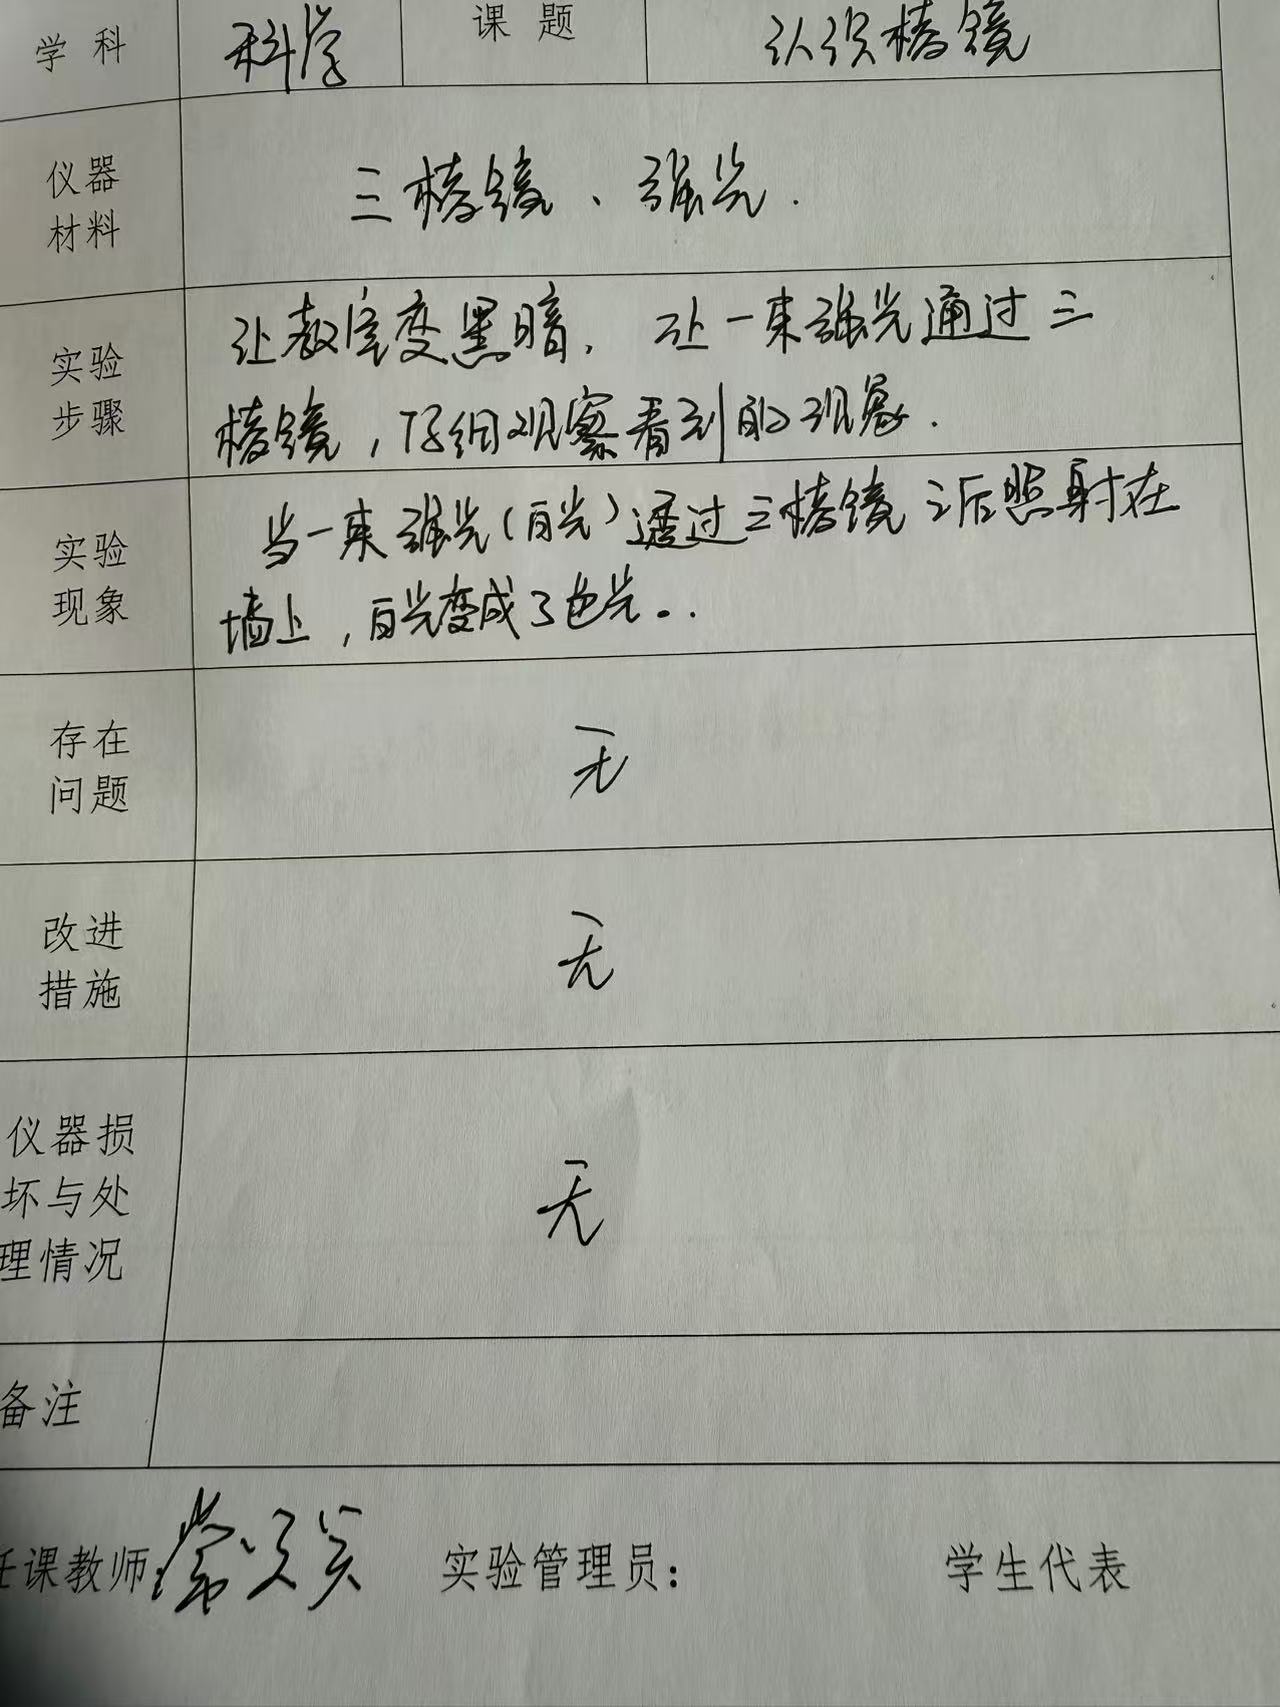 学科 科学 课题 认识棱镜
仪器
材料
三棱镜、强光.
实验
步骤
让教室变黑暗, 让一束强光通过三
棱镜,仔细观察看到的现象.
实验
现象
当一束强光(白光)透过三棱镜之后照射在
墙上,白光变成了色光。.
存在
问题
无
改进
措施
无
仪器损
坏与处
理情况
无
备注
任课教师: 实验管理员: 学生代表